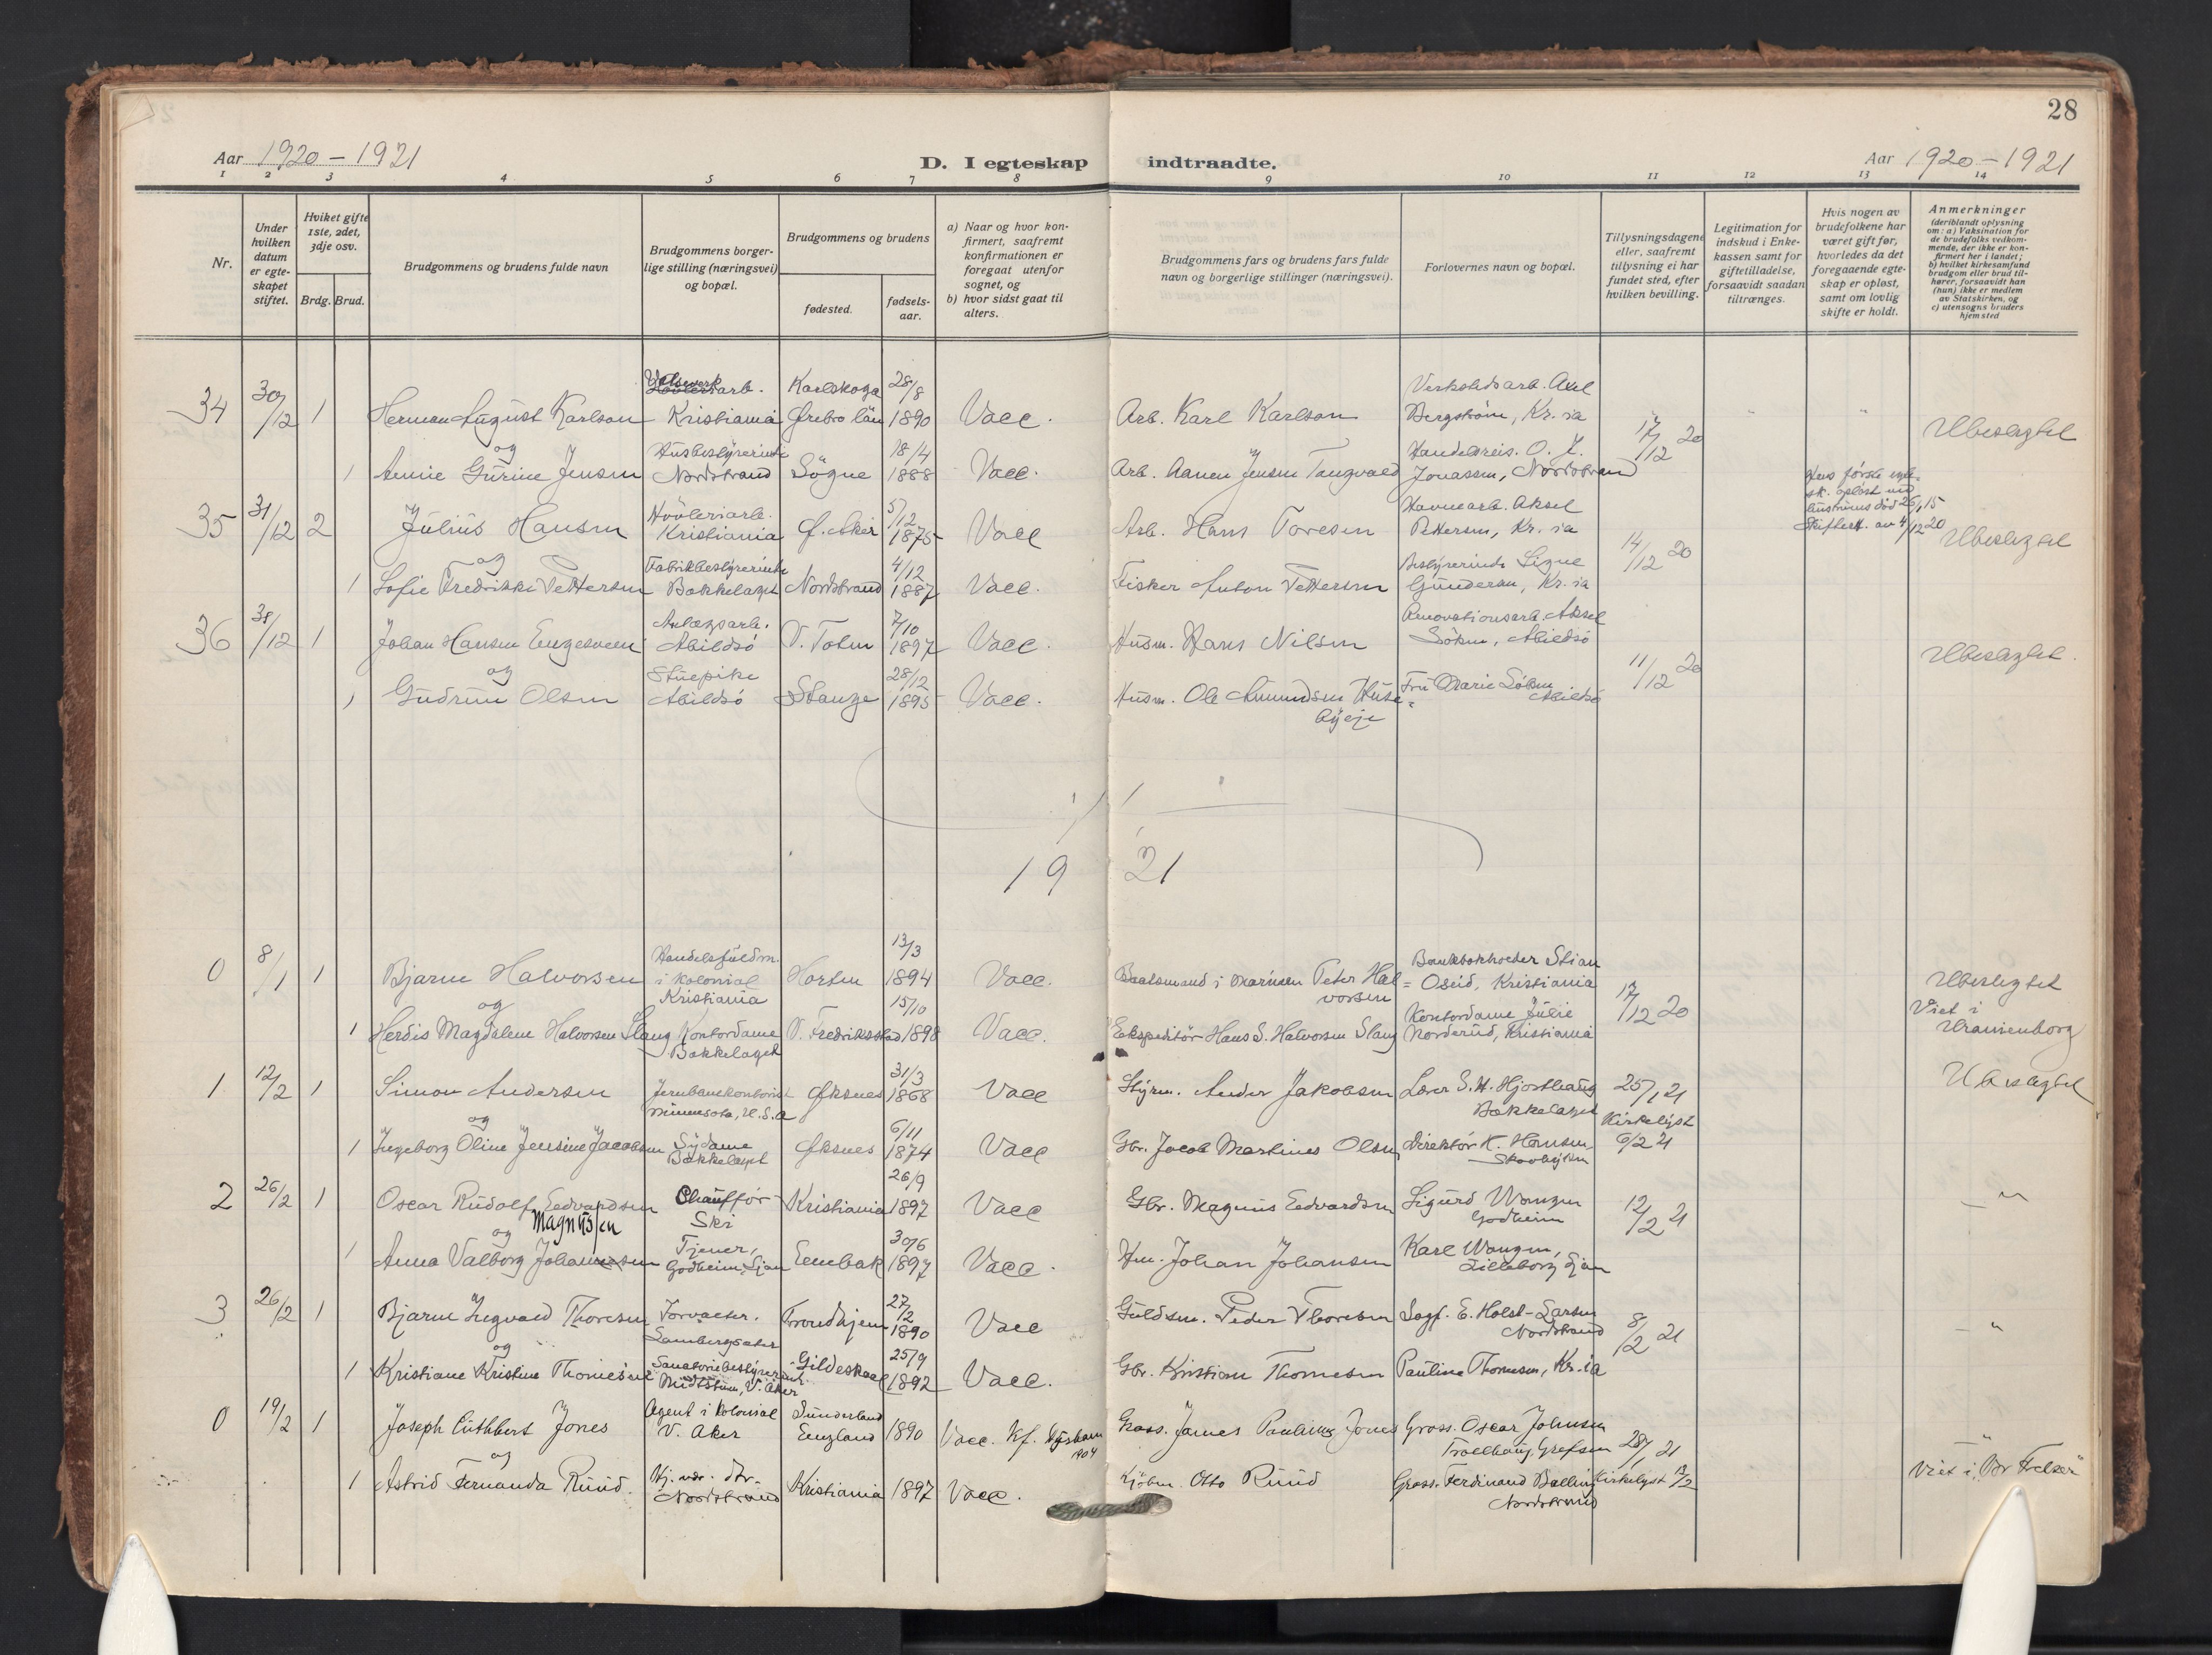 28
Aar 1920-1921
D. I egteskap indtraadte.
Aar 1920-1921
1 2 3 4 5 6 7 8 9 10 11 12 13 14
Nr.
Under hvilken datum er egteskapet stiftet.
Hviket gifte 1ste, 2det, 3dje osv.
Brdg. Brud.
Brudgommens og brudens fulde navn
Brudgommens borgerlige stilling (næringsvei) og bopæl.
Brudgommens og brudens
fødested.
fødselsaar.
a) Naar og hvor konfirmert, saafremt konfirmationen er foregaat utenfor sognet, og
b) hvor sidst gaat til alters.
Brudgommens fars og brudens fars fulde navn og borgerlige stillinger (næringsvei).
Forlovernes navn og bopæl.
Tillysningsdagene eller, saafremt tillysning ei har fundet sted, efter hvilken bevilling.
Legitimation for indskud i Enkekassen samt for giftetilladelse, forsaavidt saadan tiltrænges.
Hvis nogen av brudefolkene har været gift før, hvorledes da det foregaaende egteskap er opløst, samt om lovlig skifte er holdt.
Anmerkninger
(deriblandt oplysning om: a) Vaksination for de brudefolks vedkommende, der ikke er konfirmert her i landet; b) hvilket kirkesamfund brudgom eller brud tilhører, forsaavidt han (hun) ikke er medlem av Statskirken, og c) utensogns bruders hjemsted
34 30/12 1 Herman August Karlson Valsverkarb. Kristiania Karlskoga Ørebro län 28/8 1890 Vacc. Arb. Karl Karlson Verkstedsarb. Axel Bergstrøm, Kr.ia 17/12 20 Ubeslegtet
og
1 Annie Gurine Jensen Husbestyrerinde Nordstrand Søgne 18/4 1888 Vacc. Arb. Aanen Jensen Tangvald Handelsreis. O. J. Jonassen, Nordstrand
35 31/12 2 Julius Hansen Høvleriarb. Kristiania Ø. Aker 5/12 1875 Vacc Arb. Hans Toresen Havnearb. Aksel Pettersen, Kr.ia 14/12 20 Hans første egtesk. opløst ved hustruens død 26/1 15 Skifteatt. av 4/12 20 Ubeslegtet
og
1 Sofie Fredrikke Pettersen Fabrikbestyrerinde Bækkelaget Nordstrand 4/12 1887 Vacc. Fisker Anton Pettersen Bestyrerinde Signe Gundersen, Kr.ia
36 31/12 1 Johan Hansen Engesveen Anlægsarb. Abildsø V. Toten 7/10 1897 Vacc. Husm. Hans Nilsen Renovationsarb. Aksel Søken, Abildsø 11/12 20 Ubeslegtet.
og
1 Gudrun Olsen Stuepike Abildsø Stange 28/12 1895 Vacc. Husm. Ole Amundsen Husebyeje Fru Marie Søken Abildsø
1921
0 8/1 1 Bjarne Halvorsen Handelsfuldm. i kolonial Kristiania Horten 13/3 1894 Vacc. Baatsmand i Marinen Peter Halvorsen Bankbokholder Stian Oseid, Kristiania 17/12 20 Ubeslegtet Viet i Uranienborg
og
1 Herdis Magdalene Halvorsen Slang Kontordame Bækkelaget V. Fredrikstad 15/10 1898 Vacc. Ekspeditør Hans S. Halvorsen Slang Kontordame Julie Norderud, Kristiania
1 12/2 1 Simon Andersen Jernbanekontorist Minnesota, U.S.A Øksnes 31/3 1868 Vacc Styrm. Ander Jakobsen Lærer S. H. Hjorthaug Bækkelaget 25/1 21 Kirkelyst 6/2 21 Ubeslegtet
og
1 Ingeborg Oline Jensine Jacobsen Sydame Bækkelaget Øksnes 6/11 1874 Vacc Gbr. Jacob Martinus Olsen Direktør K. Hansen
2 26/2 1 Oscar Rudolf Edvardsen Magnusen Chauffør Ski Kristiania 26/9 1897 Vacc Gbr. Magnus Edvardsen Sigurd Wangen Godheim 12/2 21 - " -
og
1 Anna Valborg Johannesen Tjener, Godheim, Ljan Enebak 30/6 1897 Vacc. Hm. Johan Johansen Karl Wangen, Lilleborg Ljan
3 26/2 1 Bjarne Ingvald Thoresen Forvalter. Trondhjem 27/2 1890 Vacc Guldsm. Peder Thoresen Sagf. E. Holst-Larsen Nordstrand 8/2 21 - " -
og
1 Kristiane Kristine Thomesen Sanatoriebestyrerinde Midtstuen, V. Aker Gildeskaal 25/9 1892 Vacc. Gbr. Kristian Thomesen Pauline Thomesen, Kr.ia
0 19/2 1 Joseph Cuthbert Jones Agent i kolonial V. Aker Sunderland England 1890 Vacc. Kf. 1904 Gross. James Jones Gross. Oscar Johnsen Troldhaug, Grefsen 28/1 21 "
og
1 Astrid Fernanda Ruud. Hj. vær. dtr. Nordstrand Kristiania 1897 Vacc. Kjøbm. Otto Ruud Gross. Ferdinand Balling Nordstrand Kirkelyst 13/2 Viet i "Vor Frelser"